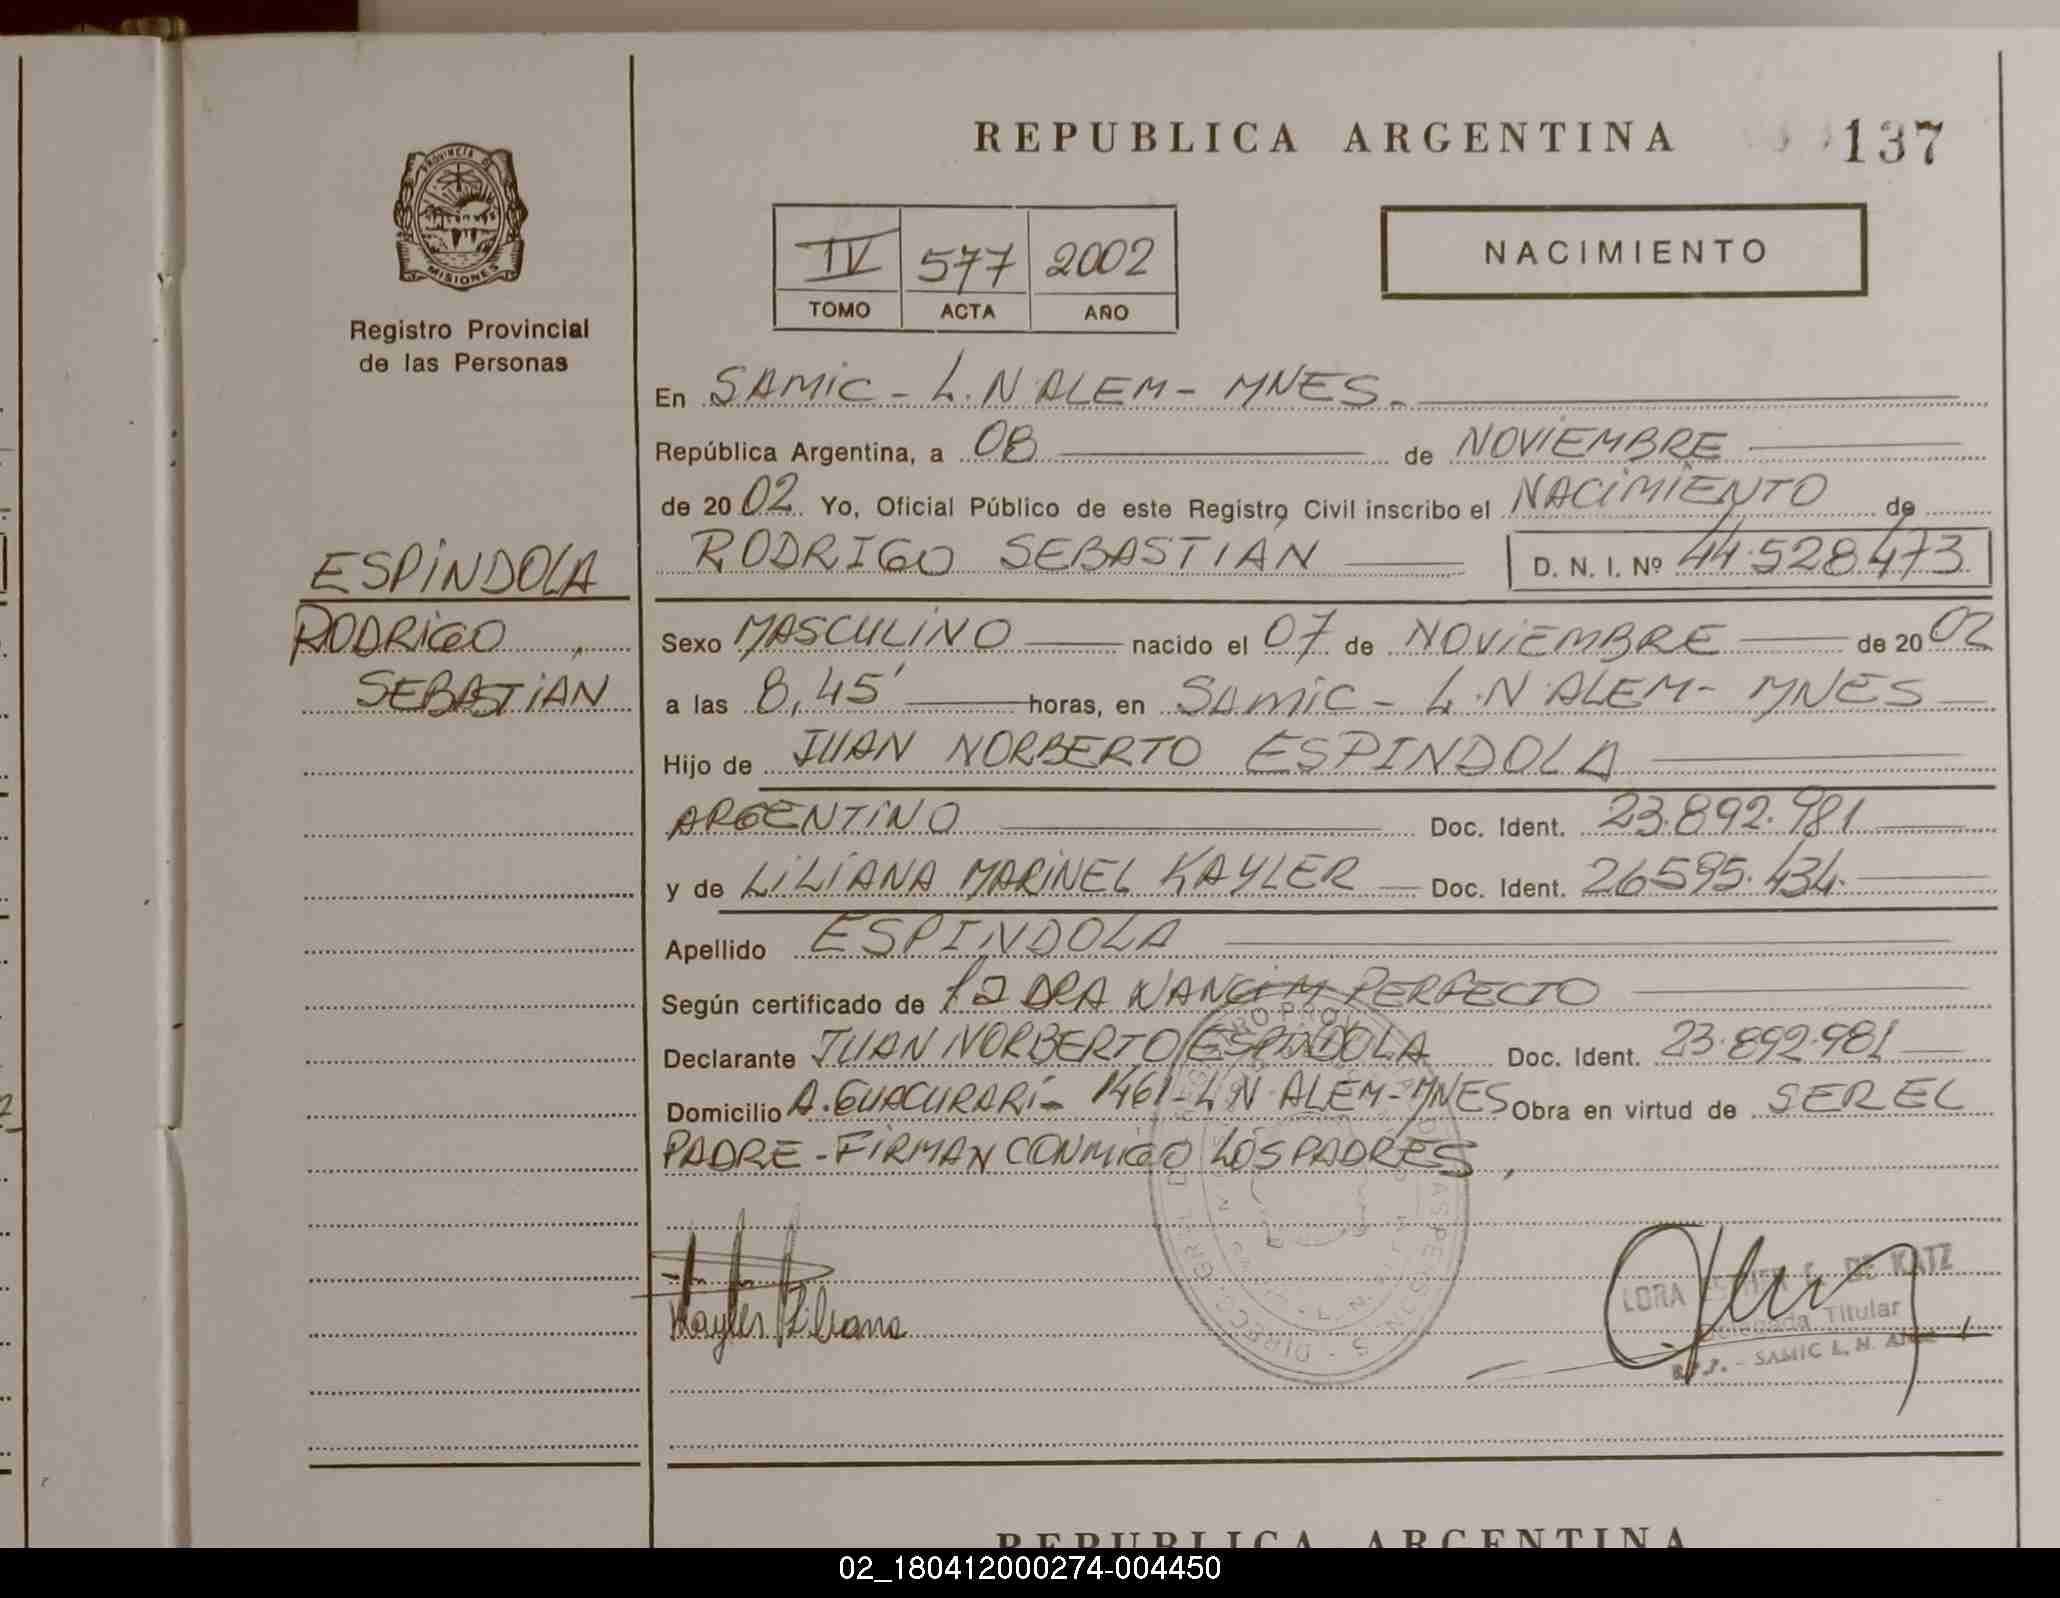 REPUBLICA ARGENTINA 137
PROVINCIA DE
MISIONES
Registro Provincial
de las Personas
IV 577 2002
TOMO ACTA AÑO
NACIMIENTO
En SAMIC - L.N ALEM - MNES.
República Argentina, a 08 de NOVIEMBRE
de 2002 Yo, Oficial Público de este Registro Civil inscribo el NACIMIENTO de
RODRIGO SEBASTIAN D. N. I. Nº 44.528.473
ESPINDOLA
RODRIGO
SEBASTIAN
Sexo MASCULINO nacido el 07 de NOVIEMBRE de 2002
a las 8,45' horas, en SAMIC - L.N ALEM - MNES
Hijo de JUAN NORBERTO ESPINDOLA
ARGENTINO Doc. Ident. 23.892.981
y de LILIANA MARINEL KAYLER Doc. Ident. 26595.434.
Apellido ESPINDOLA
Según certificado de DRA NANCI M PERFECTO
Declarante JUAN NORBERTO ESPINDOLA Doc. Ident. 23.892.981
Domicilio A. GUACURARI - 1461 - L N ALEM - MNES Obra en virtud de SER EL
PADRE - FIRMAN CONMIGO LOS PADRES
Kayler Liliana
LORA ESTHER DE KATZ
Delegada Titular
SAMIC L. N. ALEM
REPUBLICA ARGENTINA
02_180412000274-004450